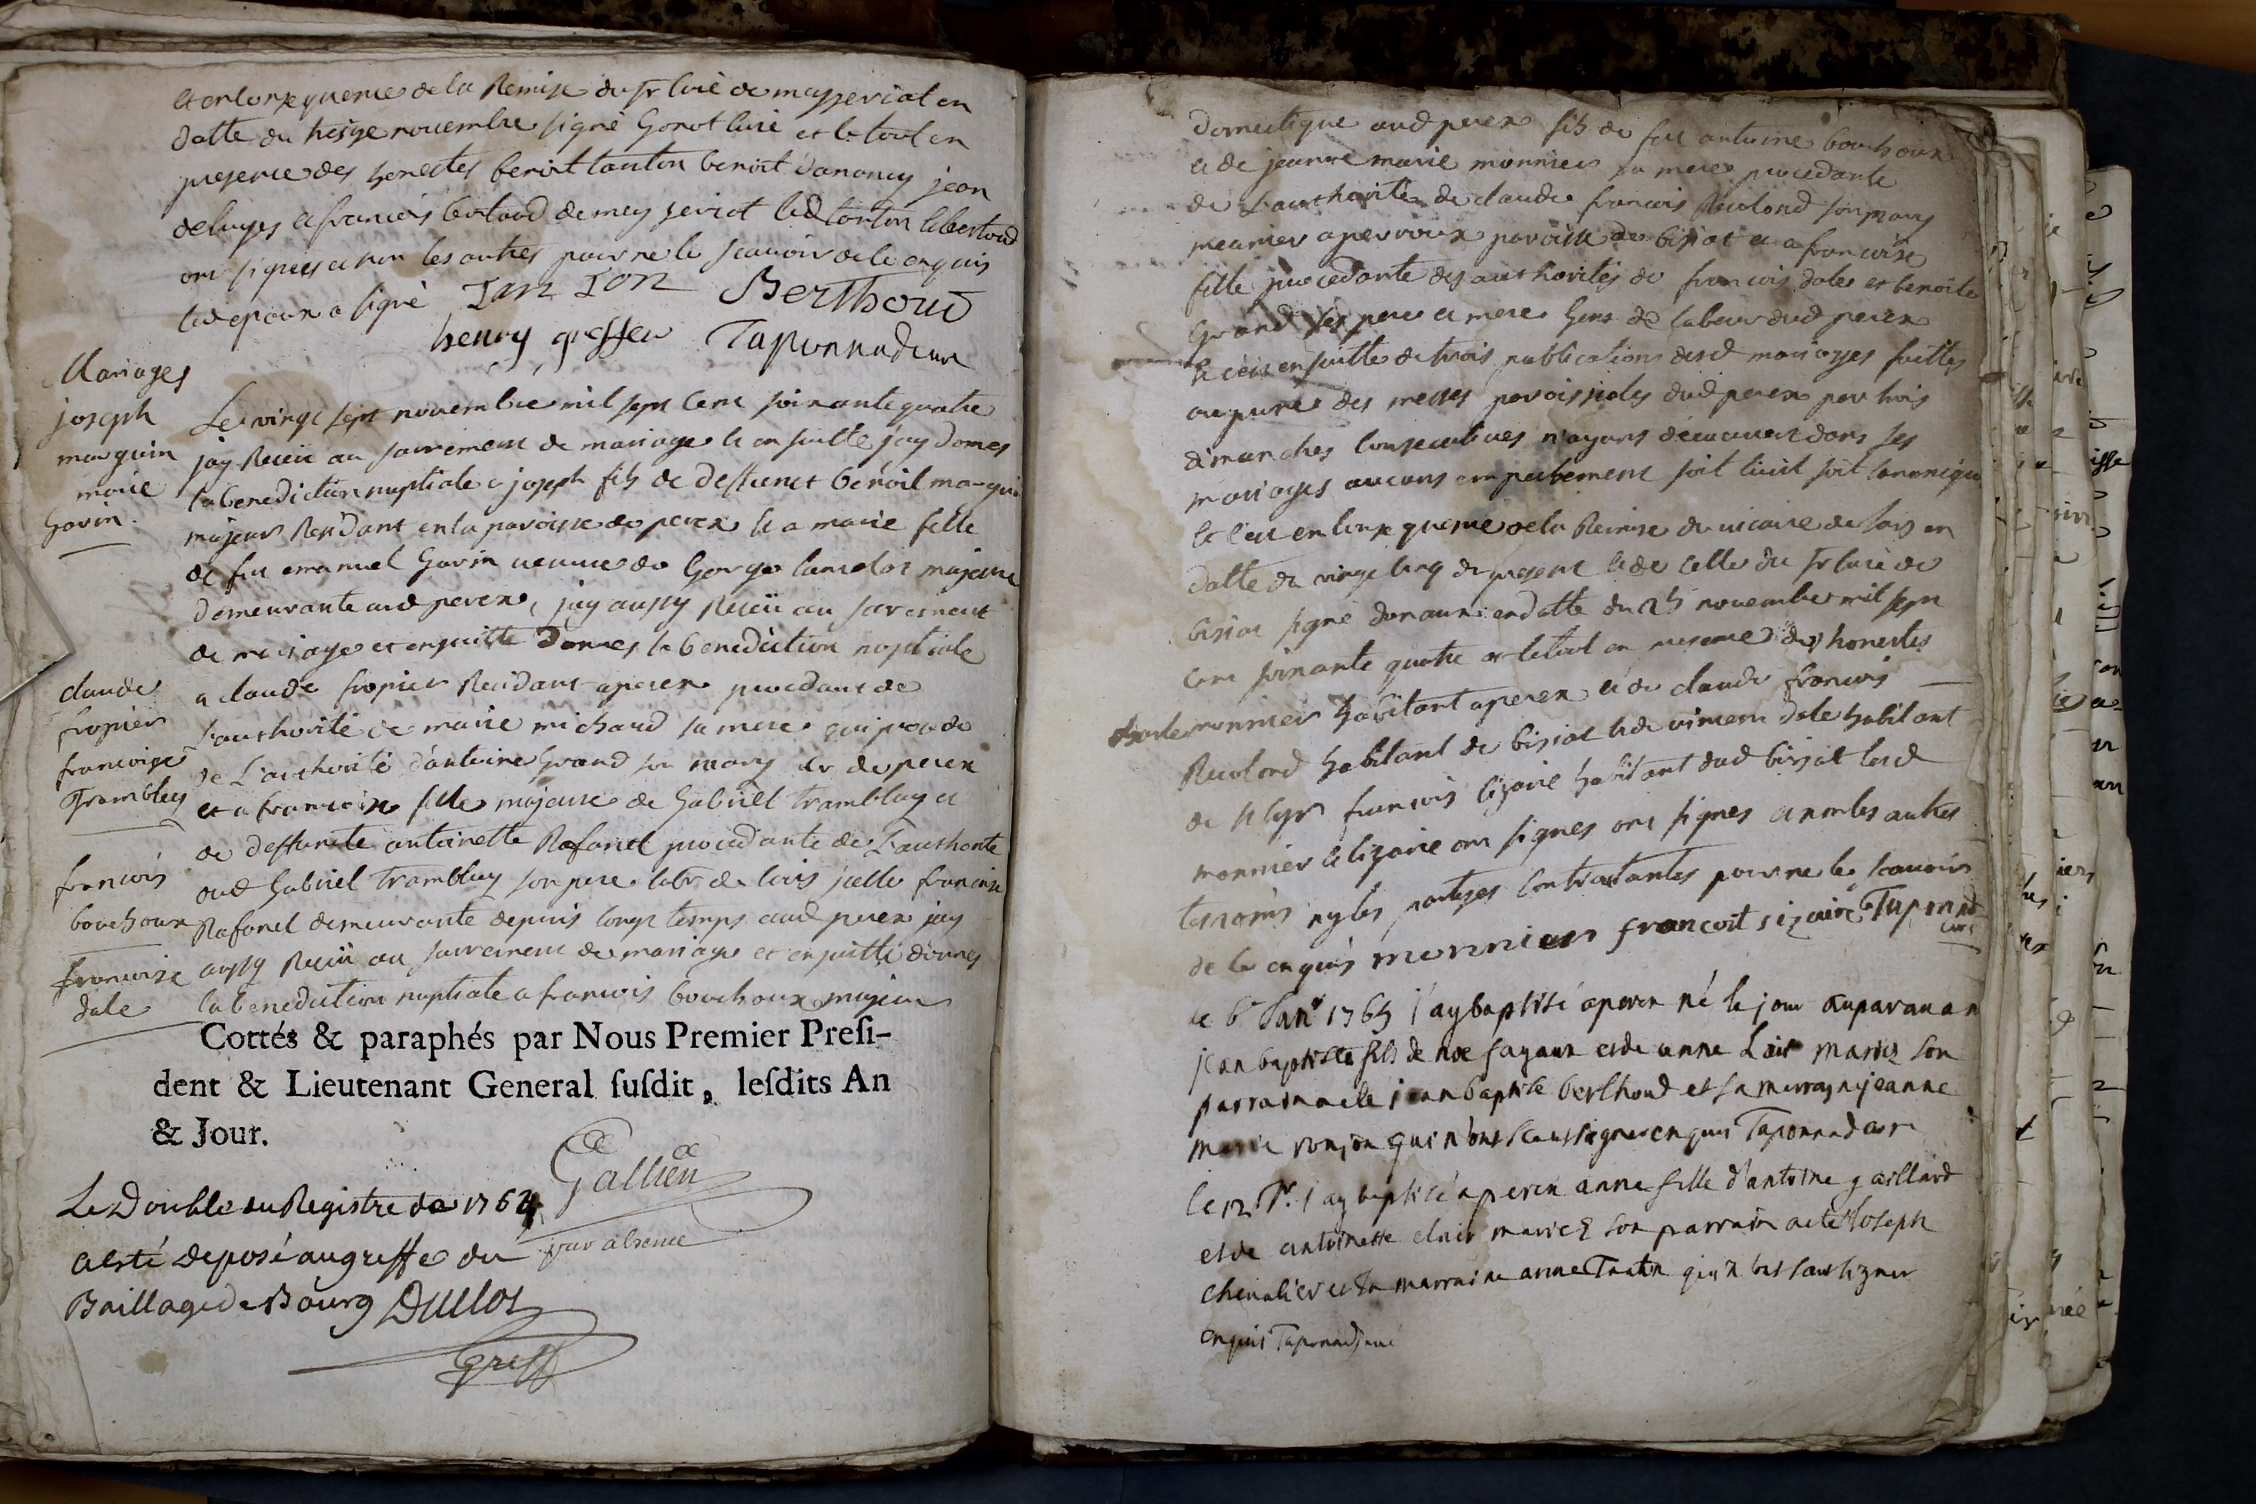 et en consequence de la Remise du sr curé de messeriat en
datte du treize novembre signé Gonot curé et le tout en
presence des honestes benoit tonton benoit danancy jean
deluyes et francois bertoud de mey seriot led tonton le bertoud
ont signés et non les autres pour ne le scavoir de ce enquis
led epoux a signé Tan Ton Berthoud
henry gresser Taponnadcure
Mariages
joseph
marguin
marie
Gavin.
Le vingt sept novembre mil sept cent soixante quatre
jay Receü au sacrement de mariage et en suitte j'ay donnes
la benediction nuptiale a joseph fils de deffunct benoit marguin
majeur Residant en la paroisse de perex et a marie fille
de feu emanuel Gavin veuve de George lancelot majeure
demeurante aud perex, jay aussy Receü au sacrement
de mariage et ensuitte donnes la benediction nuptiale
claude
fropier
francoise
Trambley
a claude fropier Residant a perex procedant de
l'authorité de marie michaud sa mere qui procede
de L'authorité d'antoine Grand son mary de perex
et a francoise fille majeure de Gabriel Tramblay et
de deffuncte antoinette Rafanel procedante de L'authorité
dud Gabriel Tramblay son pere labr de lais jcelle francoise
francois
bouchoux
francoise
dale
Rafanel demeurante depuis longt temps aud perex jay
aussy Receü au sacrement de mariage et ensuitte donnes
la benediction nuptiale a francois bouchoux majeur
Cottés & paraphés par Nous Premier Presi-
dent & Lieutenant General susdit, lesdits An
& Jour.
Gallien
par absence
Le Double du Registre de 1764
a esté deposé au greffe du
Baillage de Bourg Dullot
Greff
domestique aud perex fils de feu antoine bouchoux
et de jeanne marie monnier sa mere procedante
de L'authorité de claude francois Revlond son mary
meunier a perroux paroisse de bisiat et a francoise
fille procedante des authorités de francois dale et benoite
Grand ses pere et mere Gens de labeur dud perex
et ce en suitte de trois publications desd mariages faittes
au prone des messes paroissiales dud perex par trois
dimanches consecutives n'ayant decouvert dans ses
mariages aucuns empechement soit civil soit canonique
et c'est en consequence de la Remise du vicaire de lais en
datte du vingt cinq du present et de celle du sr curé de
bisiat signé donaux en datte du 25 novembre mil sept
cent soixante quatre et le tout en presence des honestes
monnier habitant a perex et de claude francois
Revlond habitant de bisiat et de vincent dale habitant
de st Cyr francois sizaire habitant dud bisiat lesd
monnier et sizaire ont signes ont signes et non les autres
tesmoins ny les parties contractantes pour ne le scavoir
de ce enquis monnier francoit sizaire Taponnad
curé
le 6e Janr 1765 j'ay baptisé a perex né le jour auparavan
jean baptiste fils de noe fayaux et de anne Lais mariez son
parrain a ete jean baptiste berthoud et sa marrayne jeanne
marie ronjon qui n'ont sceut signer enquis Taponnadcure
le 12 Jr j'ay baptisé a perex anne fille d'antoine gaillard
et de antoinette clair mariez son parrain a ete Joseph
chevalier et sa marraine anne Tantin qui n'ont sceut signer
enquis Taponnad curé